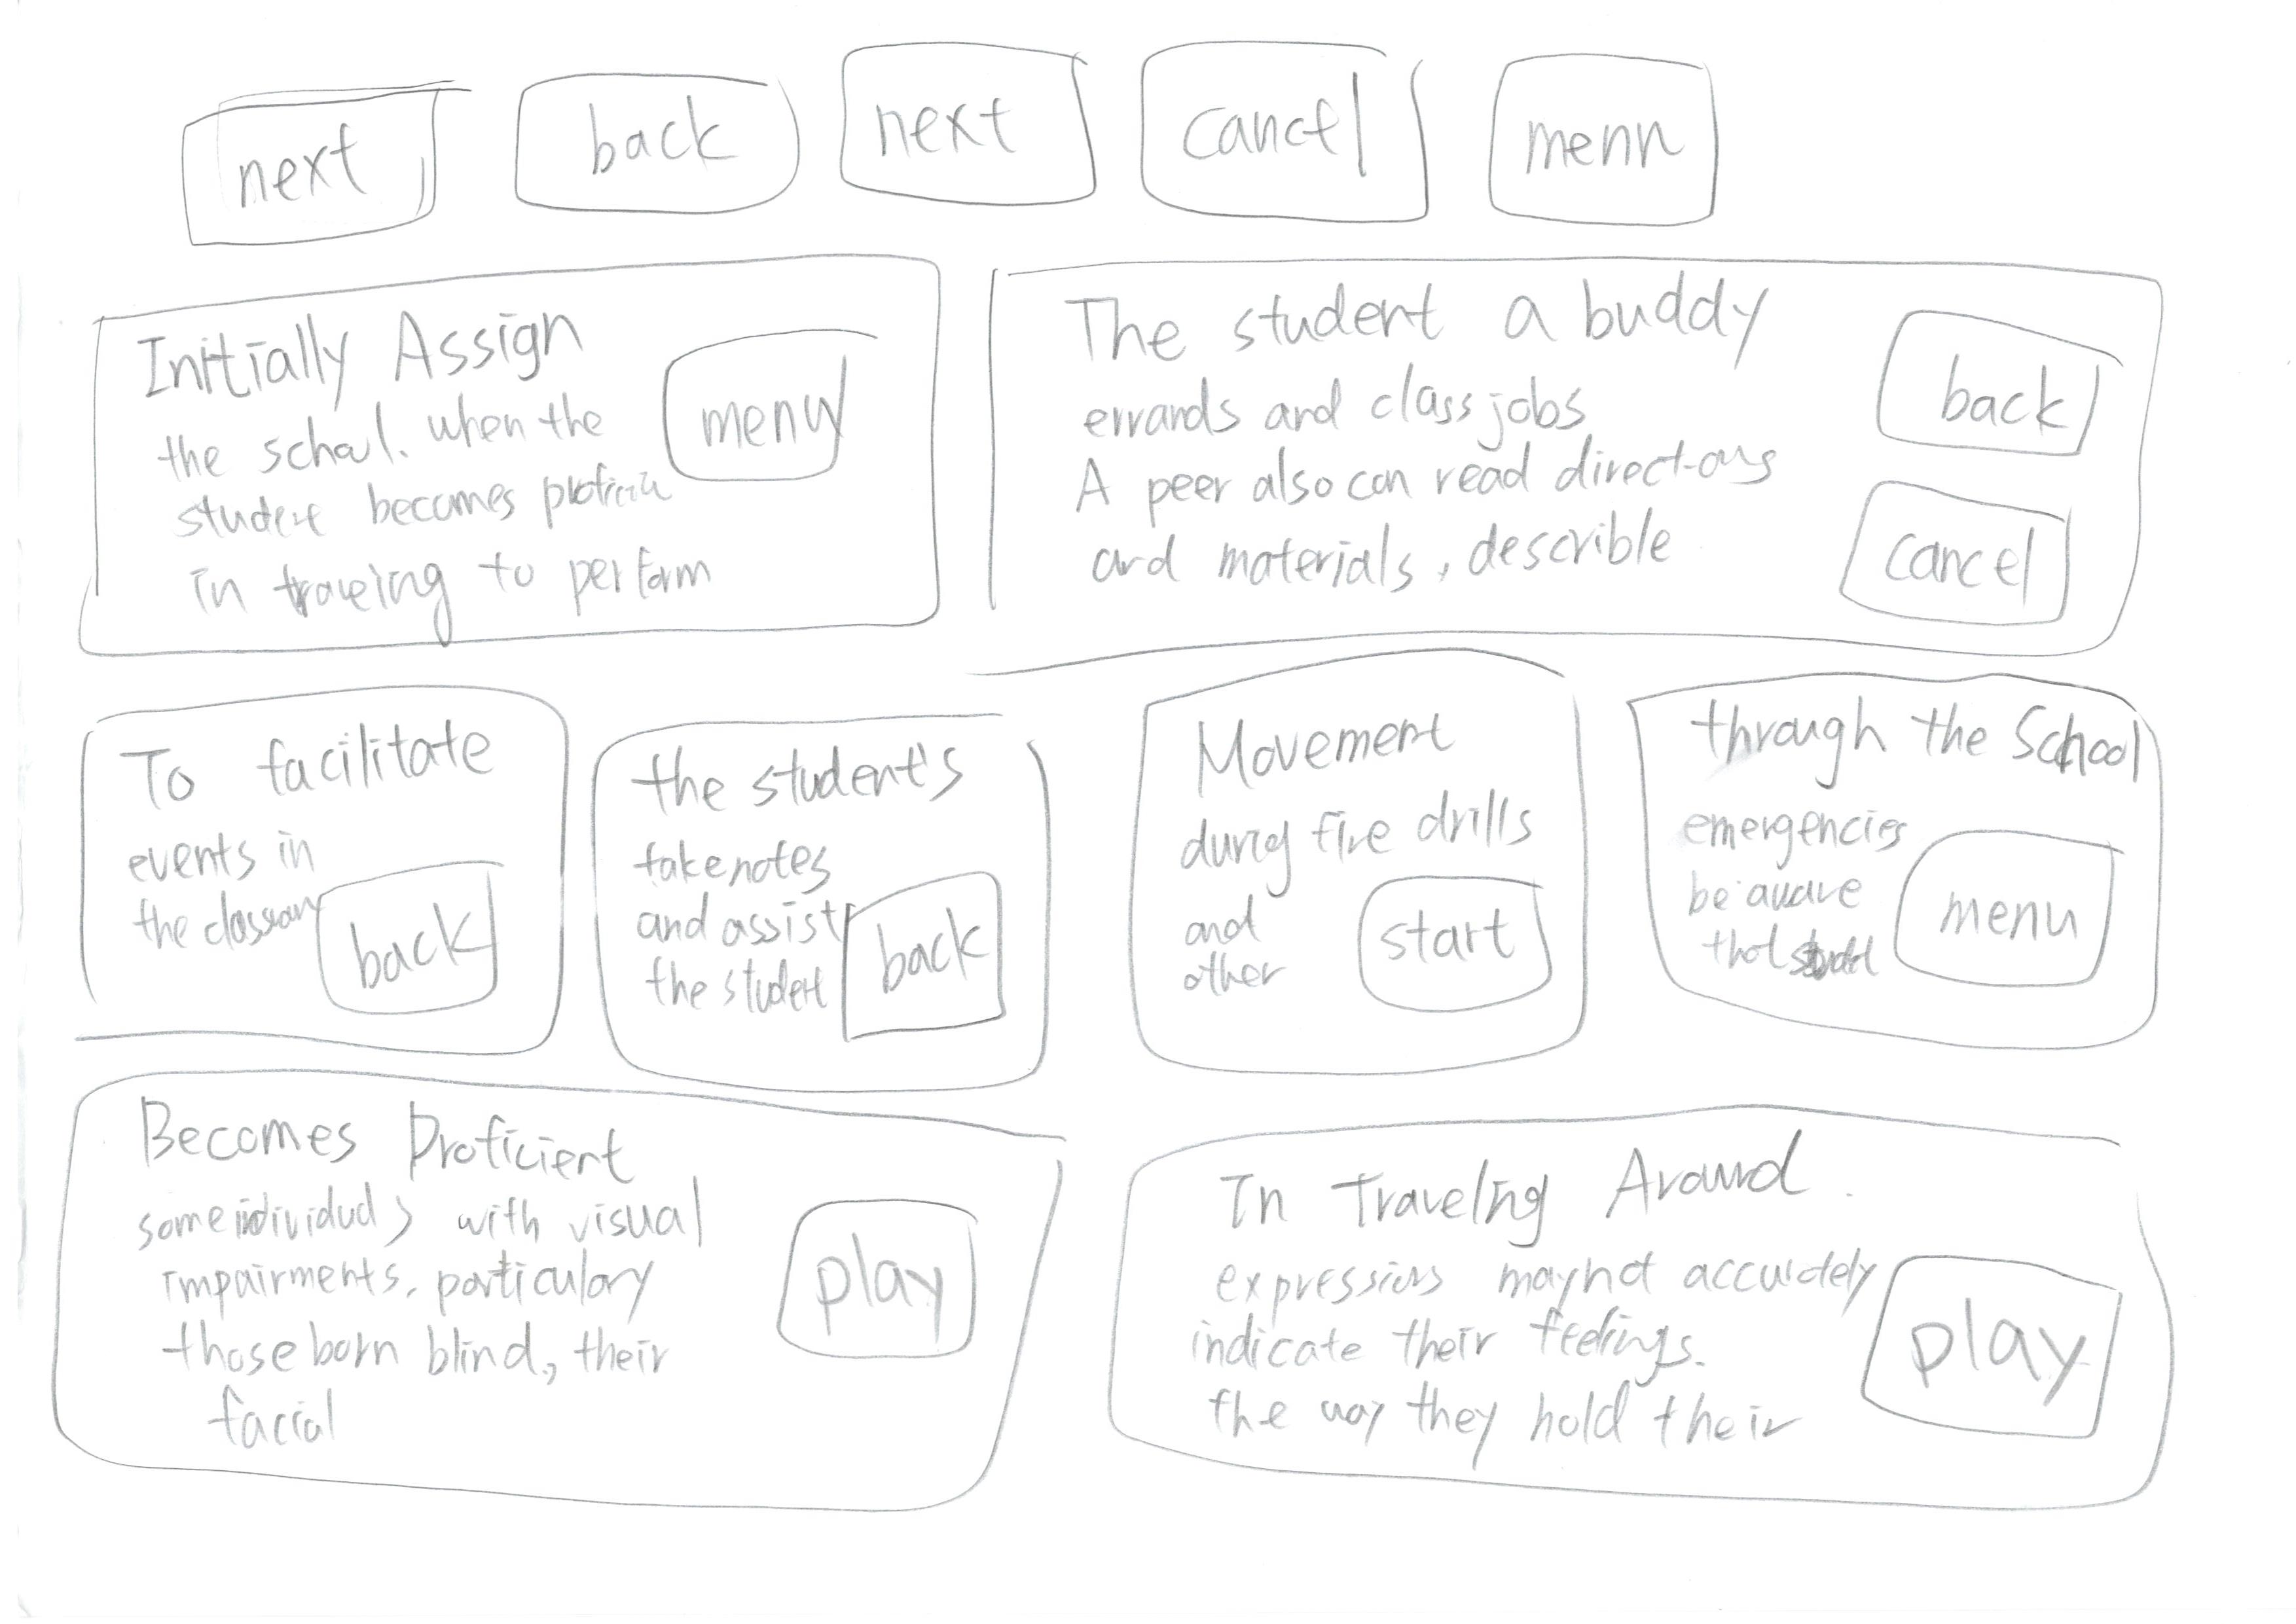 next
back
next
cancel
menu
Initially Assign
the school. when the
student becomes
in traveing to perform
menu
The student a buddy
errands and class jobs
A peer also can read directions
and materials, describle
back
cancel
To facilitate
events in
the classroom
back
the student's
take notes
and assist
the student
back
Movement
during fire drills
and
other
start
through the School
emergencies
be aware
that
menu
Becomes Proficient
some individuals with visual
impairments, particulary
those born blind, their
facial
play
In Traveling Around
expressions may not accurately
indicate their feelings.
the way they hold their
play